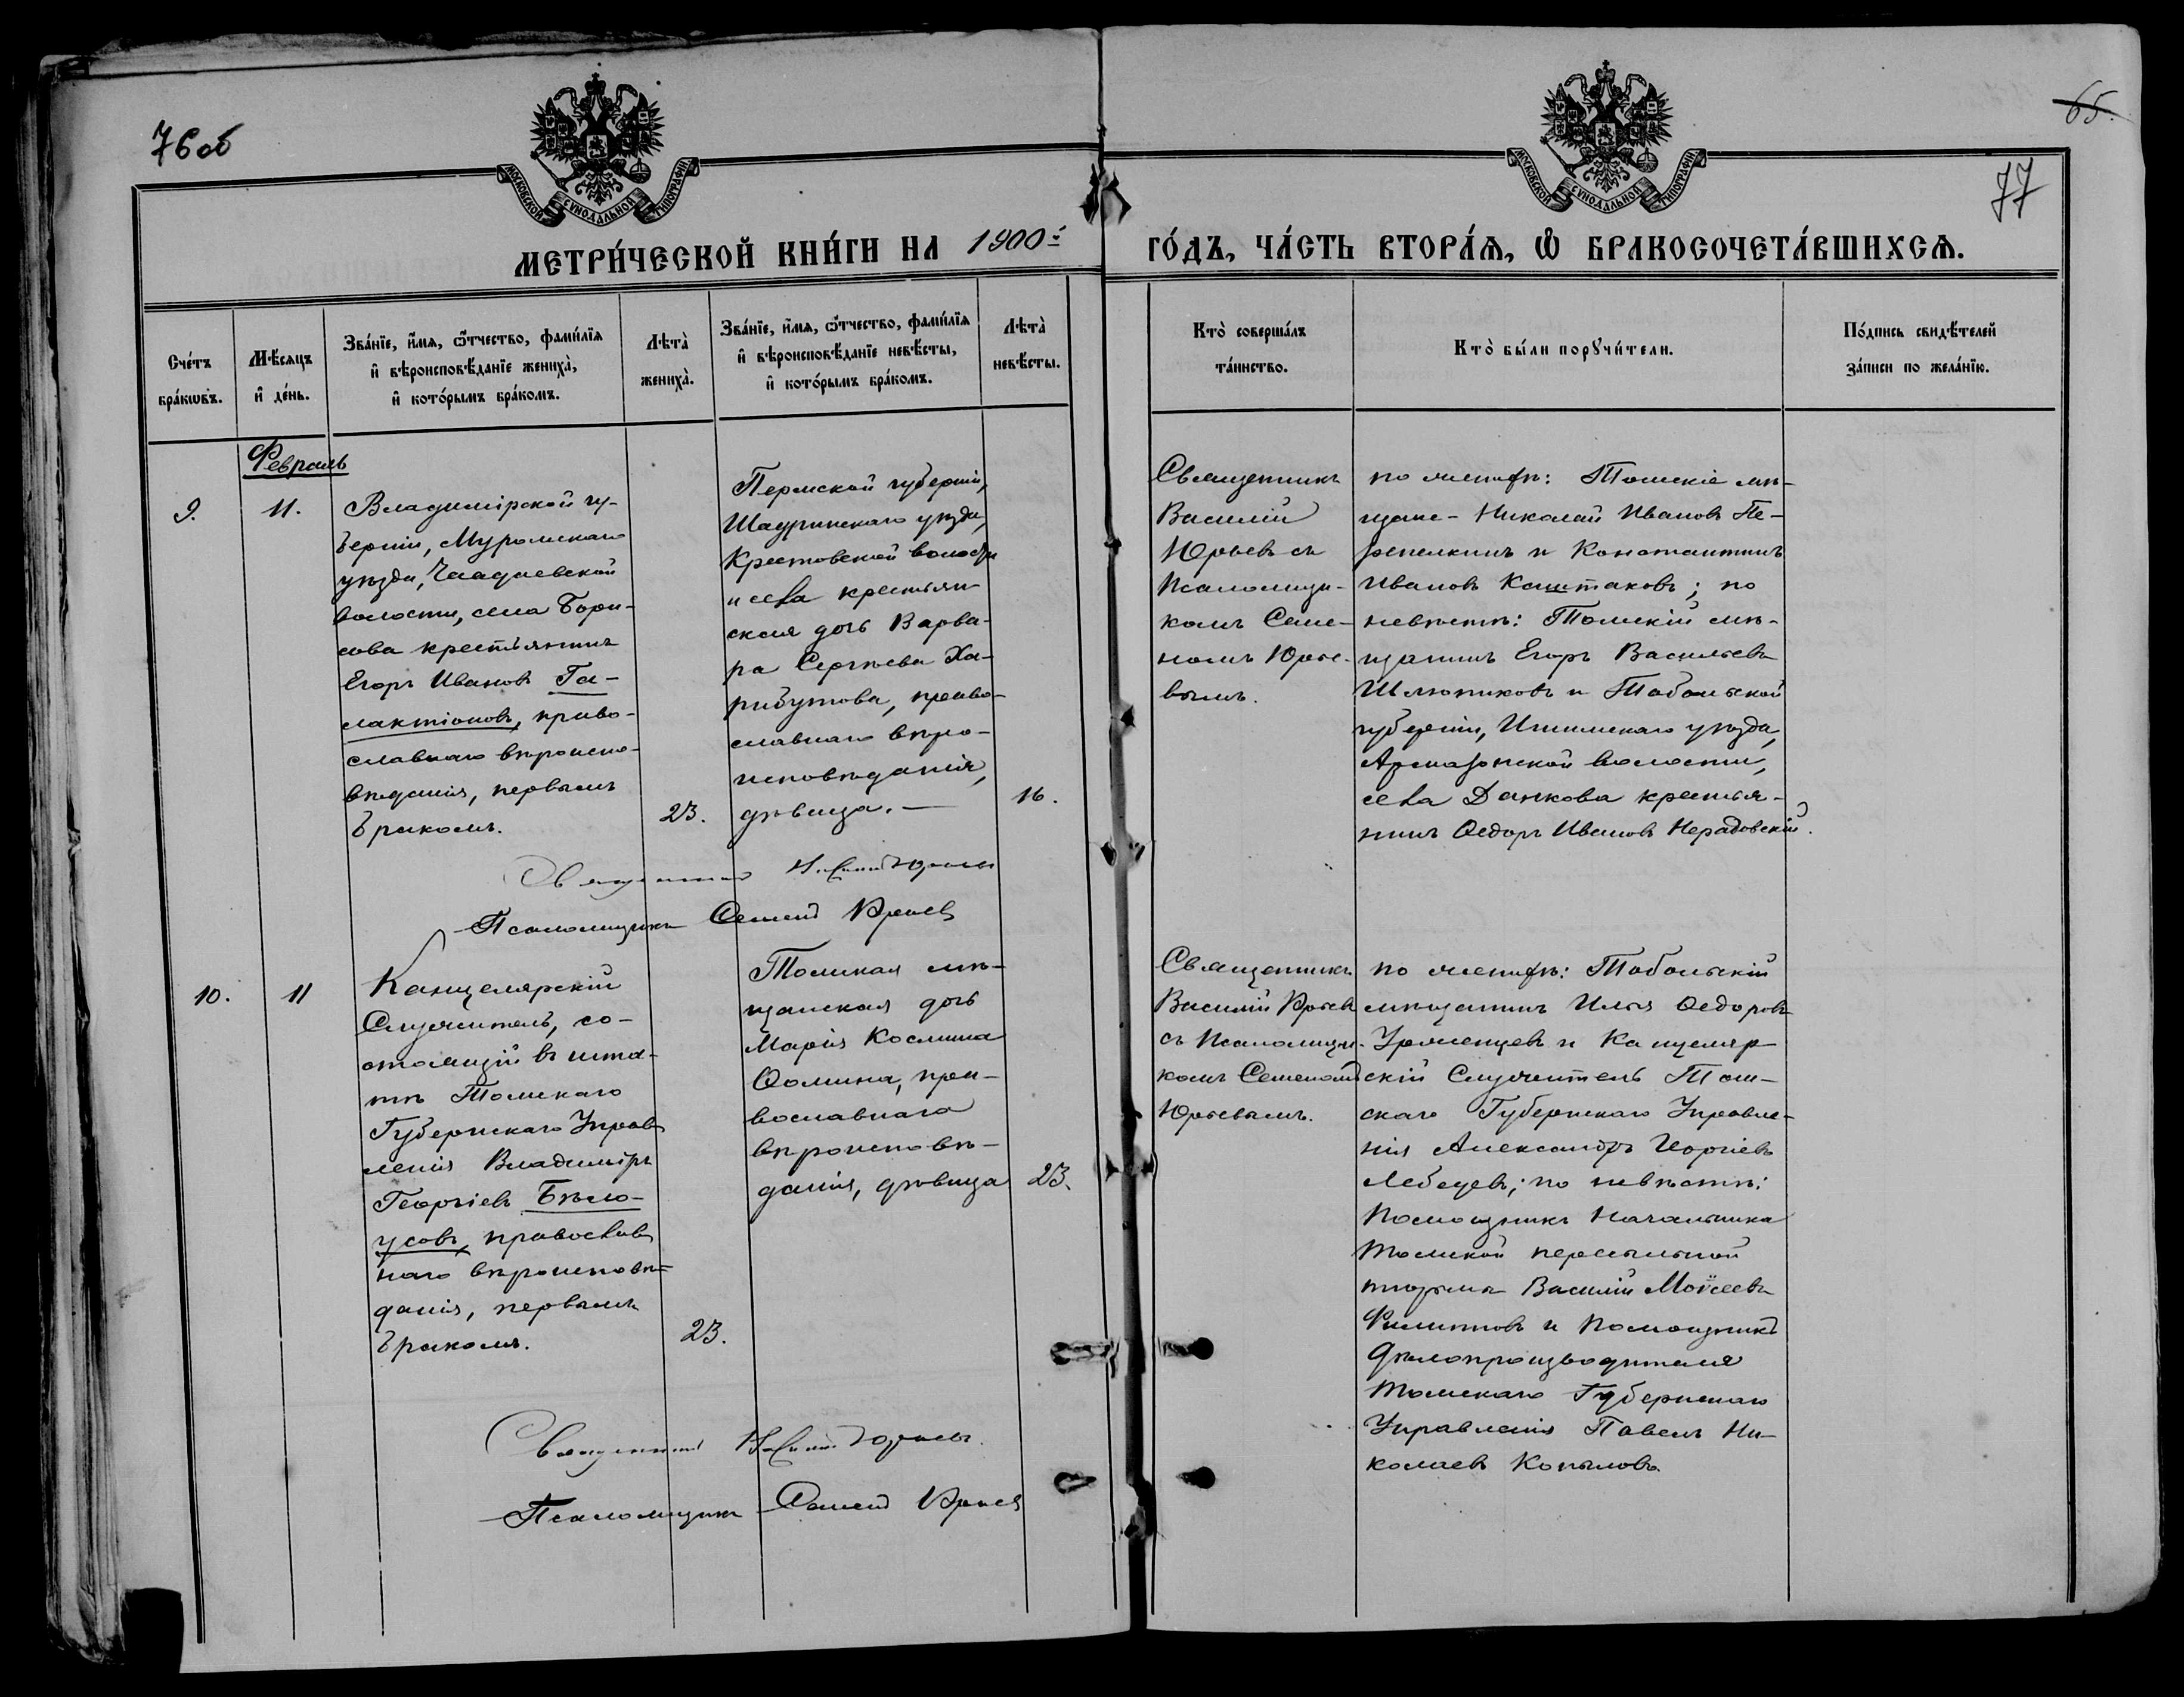 76об
65.
77
МОСКОВСКОЙ СѴНОДАЛЬНОЙ ТИПОГРАФІИ
МОСКОВСКОЙ СѴНОДАЛЬНОЙ ТИПОГРАФІИ
МЕТРИ́ЧЕСКОЙ КНИ́ГИ НА 1900й
ГО́ДЪ, ЧА́СТЬ ВТОРА́Ѧ, Ѽ БРАКОСОЧЕТА́ВШИХСѦ.
Сче́тъ
бра́кѡвъ.
Мѣ́сяцъ
и҆ де́нь.
Зва́нїе, и҆́мя, ѻ҆́тчество, фамилїя
и҆ вѣроисповѣ́данїе жениха̀,
и҆ кото́рымъ бра́комъ.
Лѣта̀
жениха̀.
Зва́нїе, и҆́мя, ѻ҆́тчество, фамилїя
и҆ вѣроисповѣ́данїе невѣ́сты,
и҆ кото́рымъ бра́комъ.
Лѣта̀
невѣ́сты.
Кто̀ соверша́лъ
та́инство.
Кто̀ бы́ли порꙋчи́тели.
По́дпись свидѣ́телей
за́писи по жела́нїю.
Февраль
9.
11.
Владимірской гу-
берніи, Муромскаго
уѣзда, Чаадаевской
волости, села Бори-
сова крестьянинъ
Егоръ Иванов Га-
лактіоновъ, право-
славнаго вѣроиспо-
вѣданія, первымъ
бракомъ.
23.
Пермской губерніи,
Шадринскаго уѣзда,
Крестовской волости
и села крестьян-
ская дочь Варва-
ра Сергѣева Ха-
рибутова, право-
славнаго вѣро-
исповѣданія,
дѣвица. —
16.
Священникъ
Василій
Юрьевъ съ
Псаломщи-
комъ Семе-
номъ Юрье-
вымъ.
по женихѣ: Томскіе мѣ-
щане - Николай Иванов Пе-
репелкинъ и Константинъ
Иванов Каштаковъ; по
невѣстѣ: Томскій мѣ-
щанинъ Егоръ Васильевъ
Шлюпиковъ и Тобольской
губерніи, Ишимскаго уѣзда,
Армизонской волости,
села Данкова крестья-
нинъ Ѳедоръ Иванов Нерадовскій.
Священникъ Василій Юрьевъ
Псаломщикъ Семенъ Юрьевъ
10.
11
Канцелярскій
Служитель, со-
стоящій въ шта-
тѣ Томскаго
Губернскаго Управ-
ленія Владиміръ
Георгіевъ Бѣло-
усовъ, православ-
наго вѣроисповѣ-
данія, первымъ
бракомъ.
23.
Томская мѣ-
щанская дочь
Марія Космина
Ѳомина, пра-
вославнаго
вѣроисповѣ-
данія, дѣвица
23.
Священникъ
Василій Юрьевъ
съ Псаломщи-
комъ Семеномъ
Юрьевымъ.
по женихѣ: Тобольскій
мѣщанинъ Илья Ѳедоровъ
Уроженцевъ и Канцеляр-
скій Служитель Том-
скаго Губернскаго Управле-
нія Александръ Георгіевъ
Лебедевъ; по невѣстѣ:
Помощникъ Начальника
Томской пересыльной
тюрьмы Василій Моѵсеевъ
Филипповъ и Помощникъ
Дѣлопроизводителя
Томскаго Губернскаго
Управленія Павелъ Ни-
колаевъ Копыловъ.
Священникъ Василій Юрьевъ.
Псаломщикъ Семенъ Юрьевъ